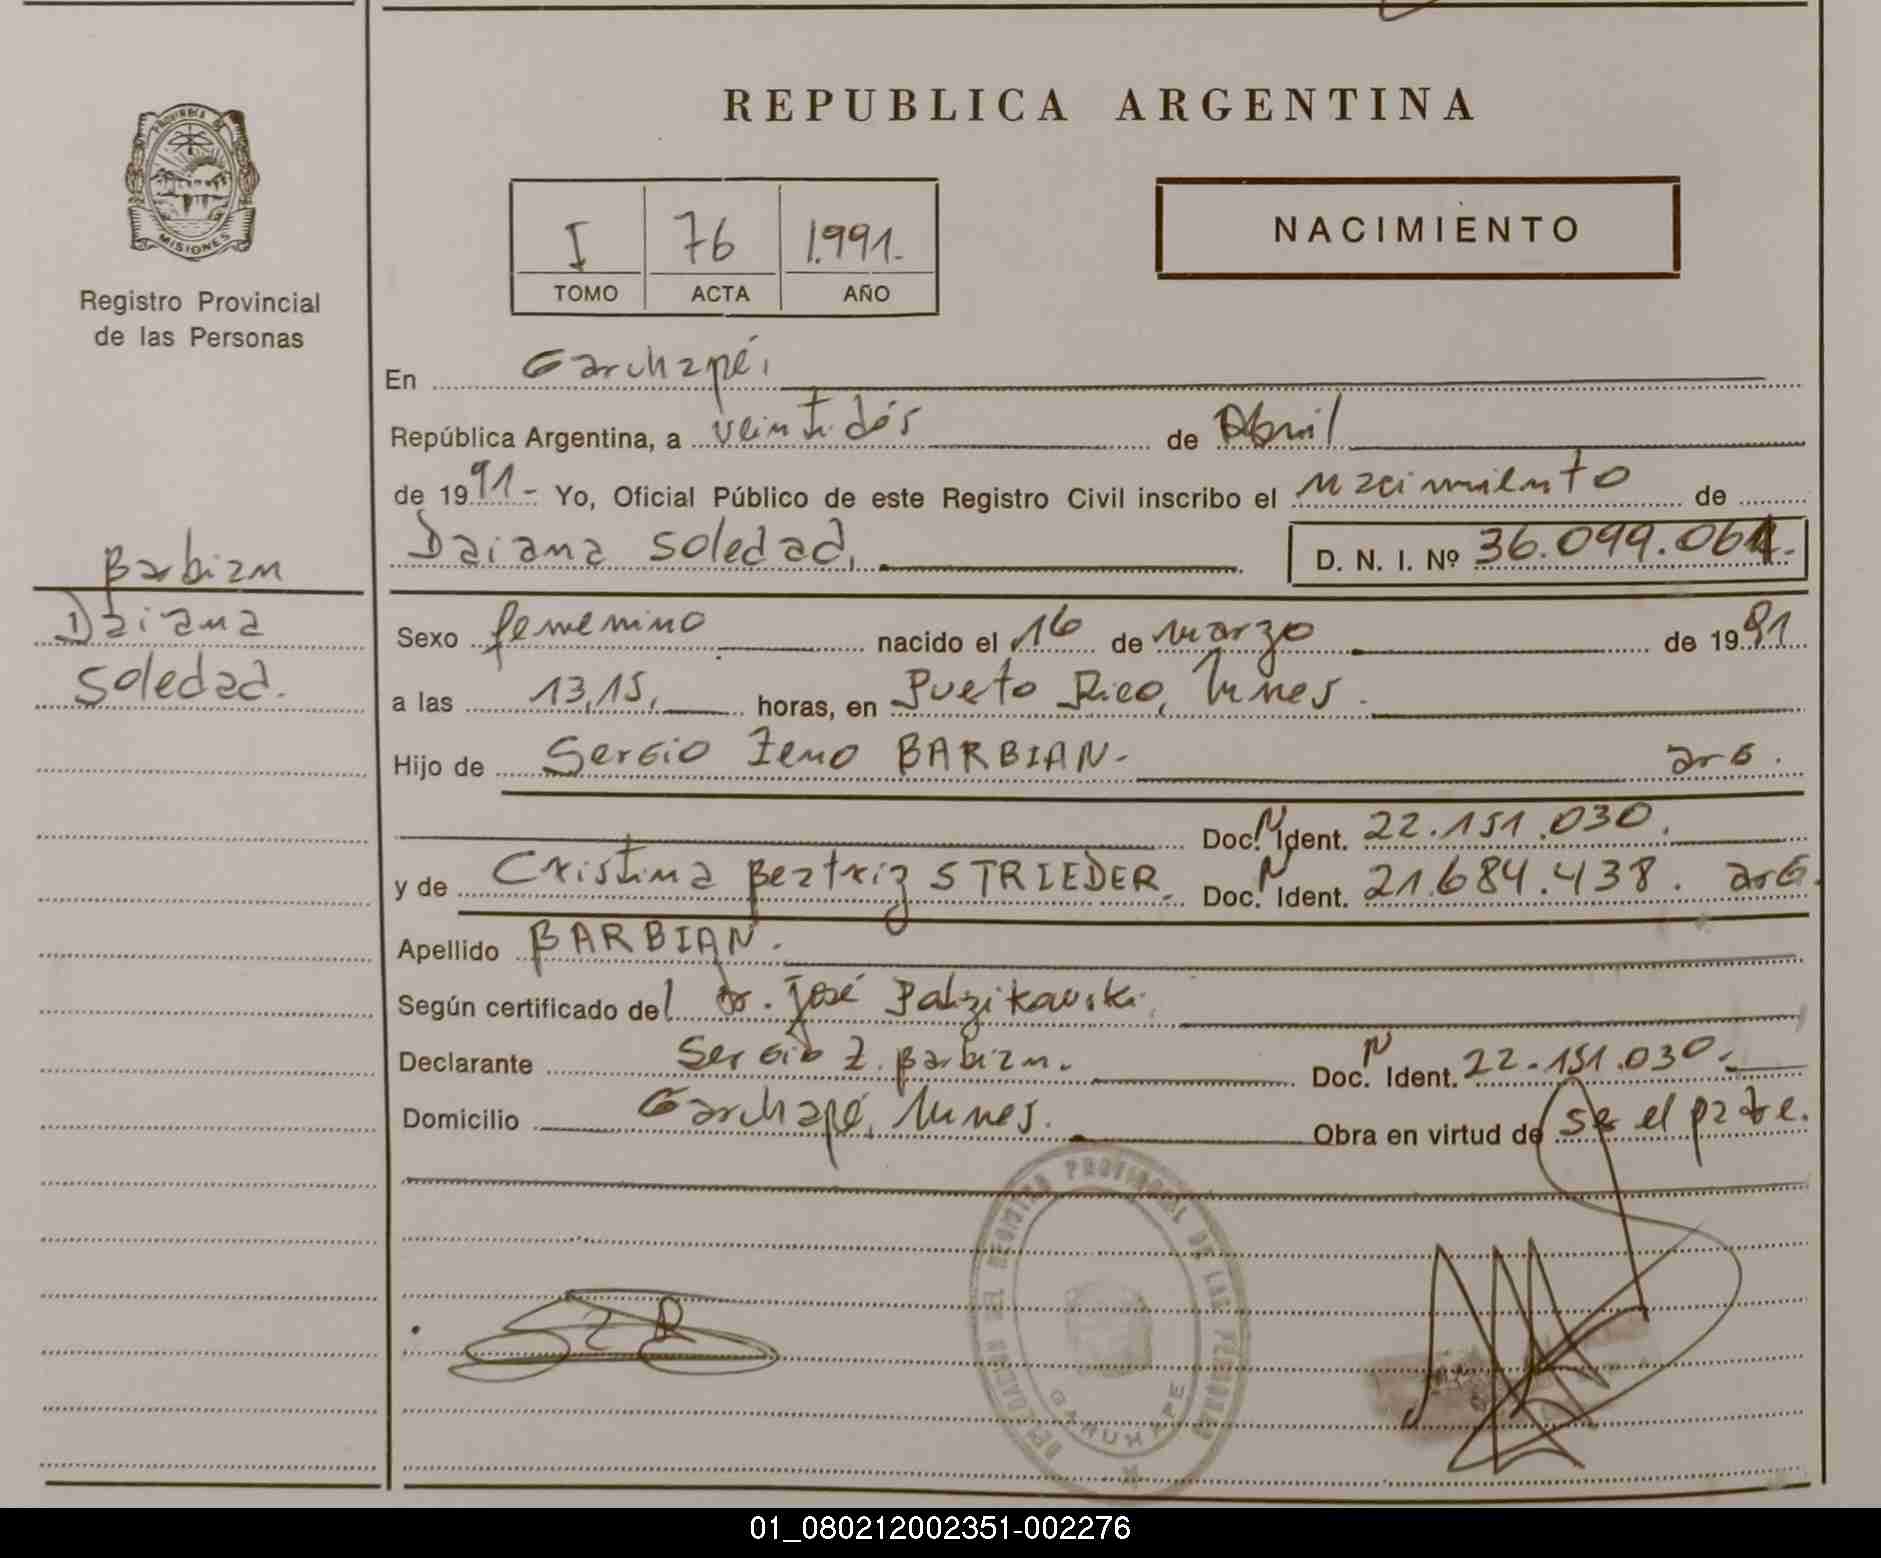 REPUBLICA ARGENTINA
PROVINCIA DE
MISIONES
Registro Provincial
de las Personas
I 76 1.991.-
TOMO ACTA AÑO
NACIMIENTO
En Garuhapé,
República Argentina, a veintidós de Abril
de 1991.- Yo, Oficial Público de este Registro Civil inscribo el nacimiento de
Daiana Soledad, D. N. I. Nº 36.099.061.-
Barbian
Daiana
Soledad.
Sexo femenino nacido el 16 de marzo de 1991
a las 13,15, horas, en Pueto Rico,
Hijo de Sergio Zeno BARBIAN.- arG.
Doc. N Ident. 22.151.030.
y de Cristina Beatriz STRIEDER. Doc. N Ident. 21.684.438. arG.
Apellido BARBIAN.
Según certificado del Dr. José
Declarante Sergio Z. Barbian. Doc. N Ident. 22.151.030.-
Domicilio Garuhapé, Obra en virtud de ser el padre.
DELEGACION DEL REGISTRO PROVINCIAL DE LAS PERSONAS
GARUHAPE
S Z B
01_080212002351-002276